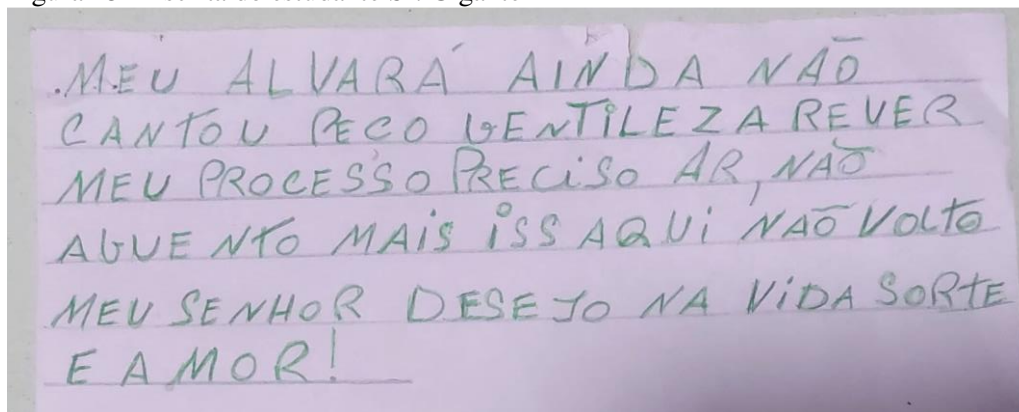 .MEU ALVARÁ AINDA NÃO
CANTOU PECO GENTILEZA REVER
MEU PROCESSO PRECISO AR, NAO
AGUENTO MAIS ISSAQUI NÃO VOLTO
MEU SENHOR DESEJO NA VIDA SORTE
E AMOR!